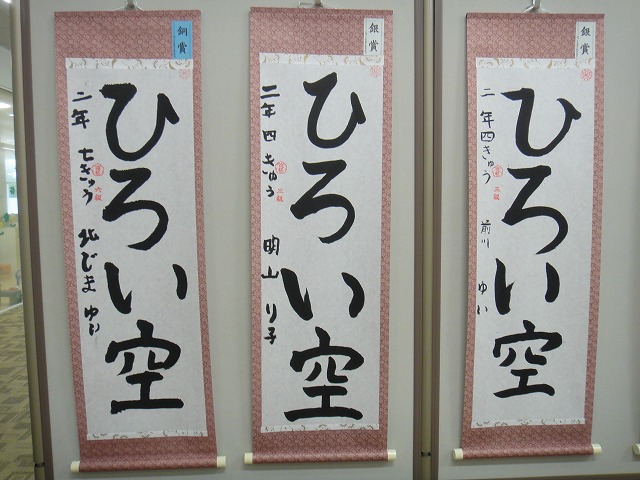 銅賞
ひろい空
二年 七きゅう 北じま ゆい
六級
銀賞
ひろい空
二年 四きゅう 明山 り子
三級
銀賞
ひろい空
二年四きゅう 前川 ゆい
三級